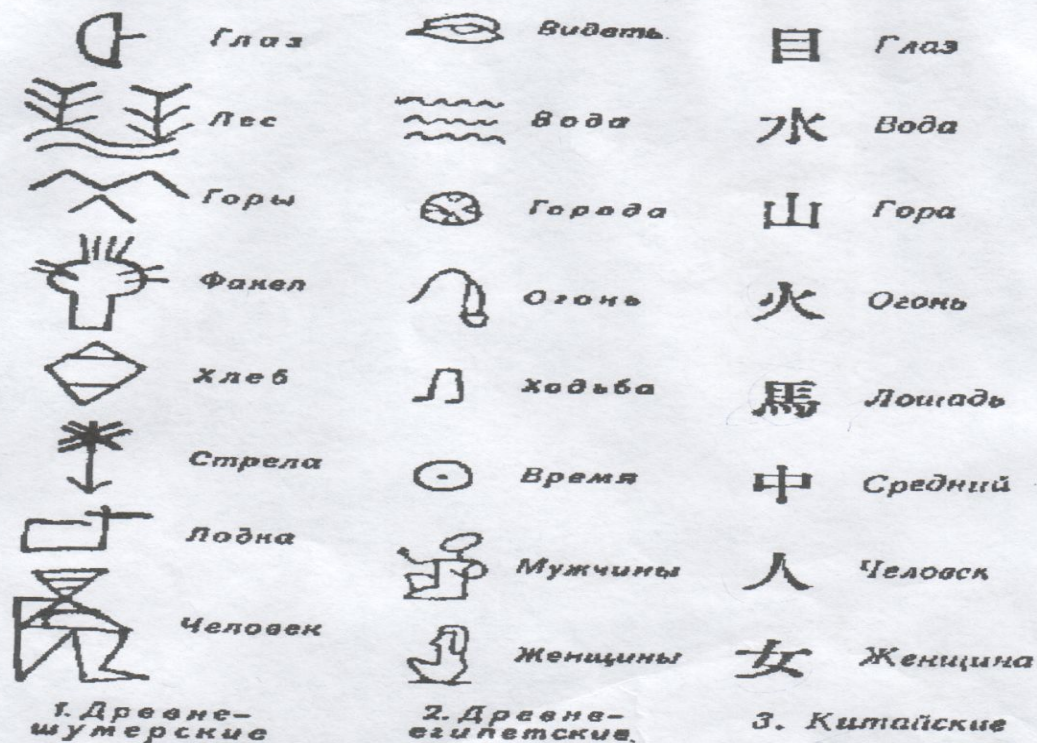 Глаз
Лес
Горы
Факел
Хлеб
Стрела
Лодка
Человек
1. Древне-
шумерские
Видеть
Вода
Города
Огонь
Ходьба
Время
Мужчины
Женщины
2. Древне-
египетские
目 Глаз
水 Вода
山 Гора
火 Огонь
馬 Лошадь
中 Средний
人 Человек
女 Женщина
3. Китайские